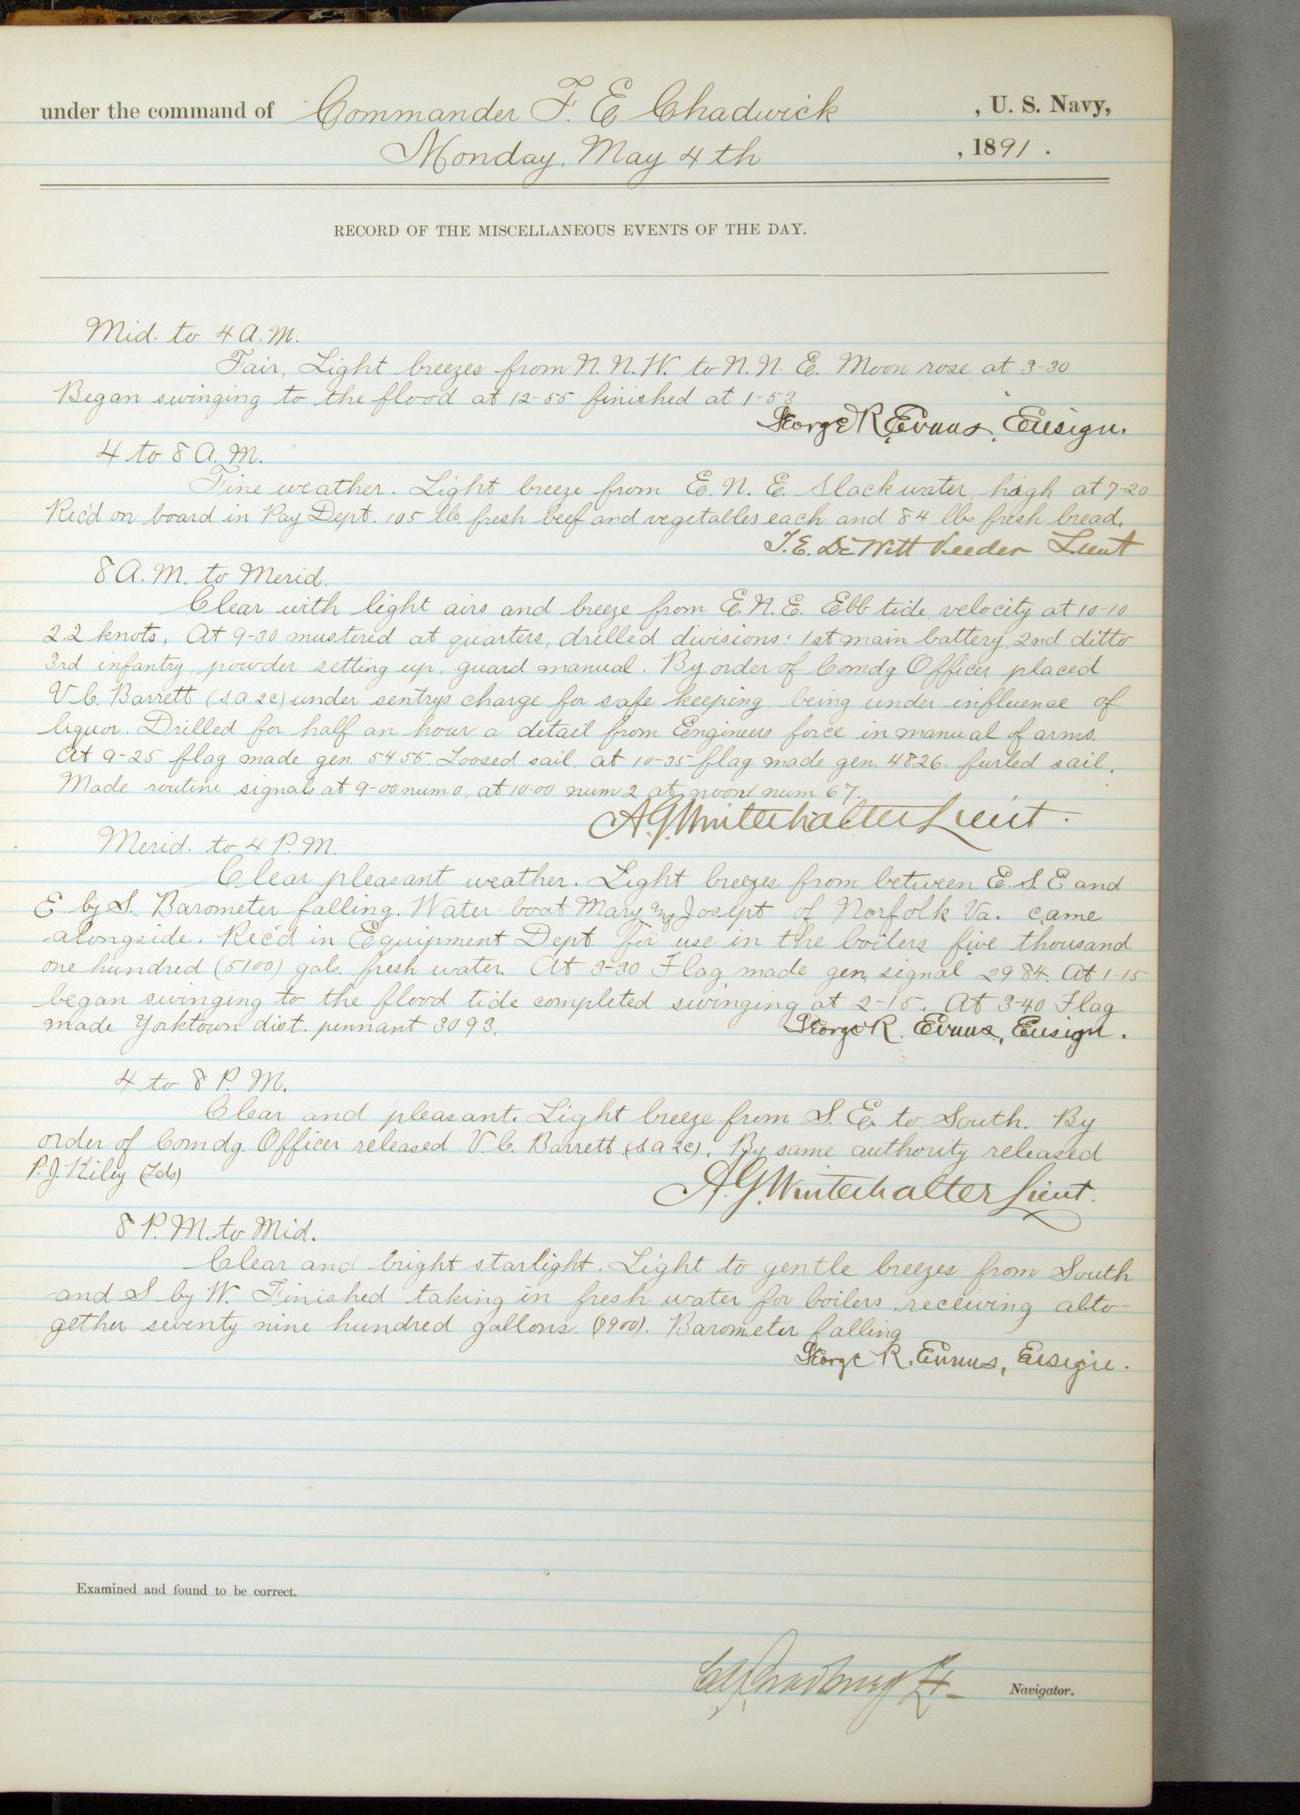 under the command of Commander F. E. Chadwick, U. S. Navy,
Monday, May 4th, 1891.
RECORD OF THE MISCELLANEOUS EVENTS OF THE DAY.
Mid. to 4 A.M.
Fair, Light breezes from N.N.W. to N.N.E. Moon rose at 3-30
Began swinging to the flood at 12-55 finished at 1-53
George R. Evans, Ensign.
4 to 8 A.M.
Fine weather. Light breeze from E.N.E. Slack water, high at 7-20
Rec'd on board in Pay Dept. 105 lbs fresh beef and vegetables each and 84 lbs fresh bread.
T.E. DeWitt Veeder Lieut
8 A.M. to Merid.
Clear with light airs and breeze from E.N.E. Ebb tide, velocity at 10-10
2.2 knots. At 9-30 mustered at quarters, drilled divisions: 1st main battery, 2nd ditto
3rd infantry, powder setting up, guard manual. By order of Comdg Officer placed
V.C. Barrett (S.A. 2c) under sentrys charge for safe keeping, being under influence of
liquor. Drilled for half an hour a detail from Engineers force in manual of arms.
At 9-25 flag made gen. 5455. Loosed sail, at 10-35 flag made gen. 4826. furled sail.
Made routine signals at 9-00 num 0, at 10-00 num 2 at noon num 67.
A.G. Winterhalter Lieut.
Merid. to 4 P.M.
Clear pleasant weather. Light breezes from between E.S.E and
E by S. Barometer falling. Water-boat Mary and Joseph of Norfolk Va. came
alongside. Rec'd in Equipment Dept for use in the boilers five thousand
one hundred (5100) gals. fresh water. At 3-30 Flag made gen. signal 2984. At 1-15
began swinging to the flood tide completed swinging at 2-15. At 3-40 Flag
made Yorktown dist. pennant 3093.
George R. Evans, Ensign.
4 to 8 P.M.
Clear and pleasant. Light breeze from S.E. to South. By
order of Comdg. Officer released V.C. Barrett (S.A. 2c). By same authority released
P.J. Kiley (Lds)
A.G. Winterhalter Lieut.
8 P.M. to Mid.
Clear and bright starlight. Light to gentle breezes from South
and S by W. Finished taking in fresh water for boilers, receiving alto-
gether seventy nine hundred gallons. (7900). Barometer falling
George R. Evans, Ensign.
Examined and found to be correct.
Navigator.